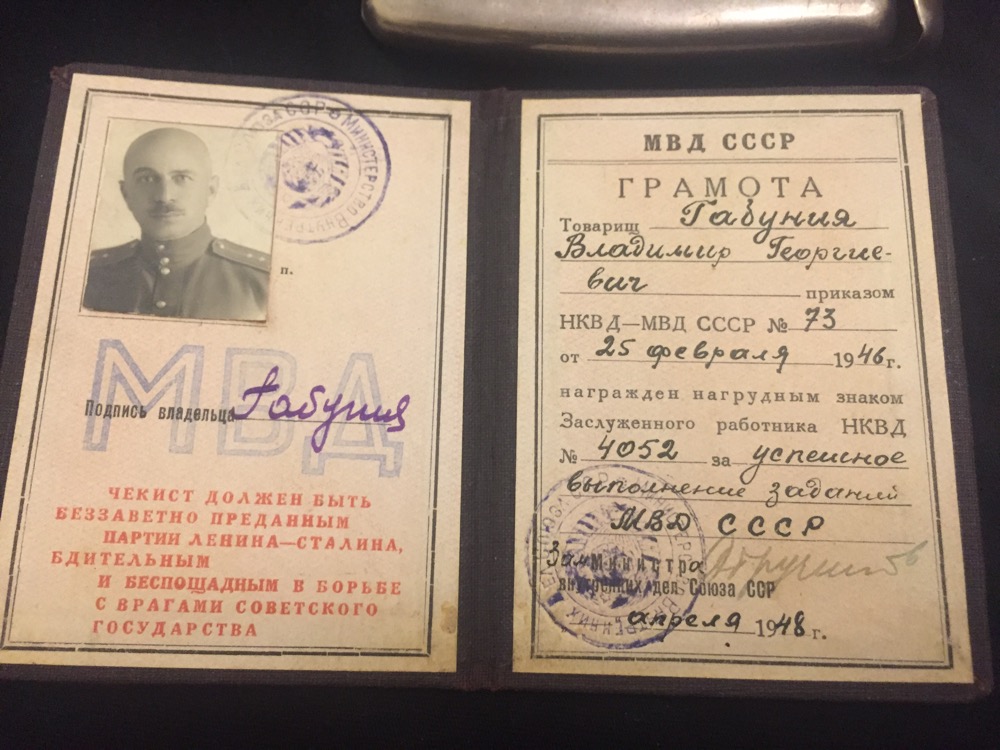 СОЮЗА ССР МИНИСТЕРСТВО ВНУТРЕН
п.
МВД
Подпись владельца Габуния
ЧЕКИСТ ДОЛЖЕН БЫТЬ
БЕЗЗАВЕТНО ПРЕДАННЫМ
ПАРТИИ ЛЕНИНА—СТАЛИНА,
БДИТЕЛЬНЫМ
И БЕСПОЩАДНЫМ В БОРЬБЕ
С ВРАГАМИ СОВЕТСКОГО
ГОСУДАРСТВА
МВД СССР
ГРАМОТА
Товарищ Габуния
Владимир Георгие-
вич приказом
НКВД—МВД СССР № 73
от 25 февраля 1946 г.
награжден нагрудным знаком
Заслуженного работника НКВД
№ 4052 за успешное
выполнение заданий
МВД СССР
Зам Министра
внутренних дел Союза ССР
апреля 1948 г.